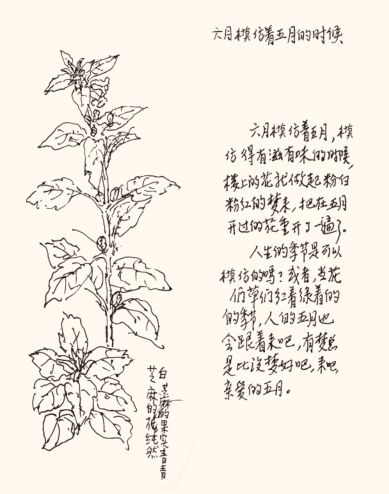 六月模仿着五月的时候
六月模仿着五月，模
仿得有滋有味的时候，
楼上的花就做起粉白
粉红的梦来，把在五月
开过的花重开了一遍了。
人生的季节是可以
模仿的吗？或者，当花
们草们红着绿着的
的季节，人的五月也
会跟着来吧，有梦总
是比没梦好吧，来吧，
亲爱的五月。
白芝麻的果实青青
芝麻的花纯然